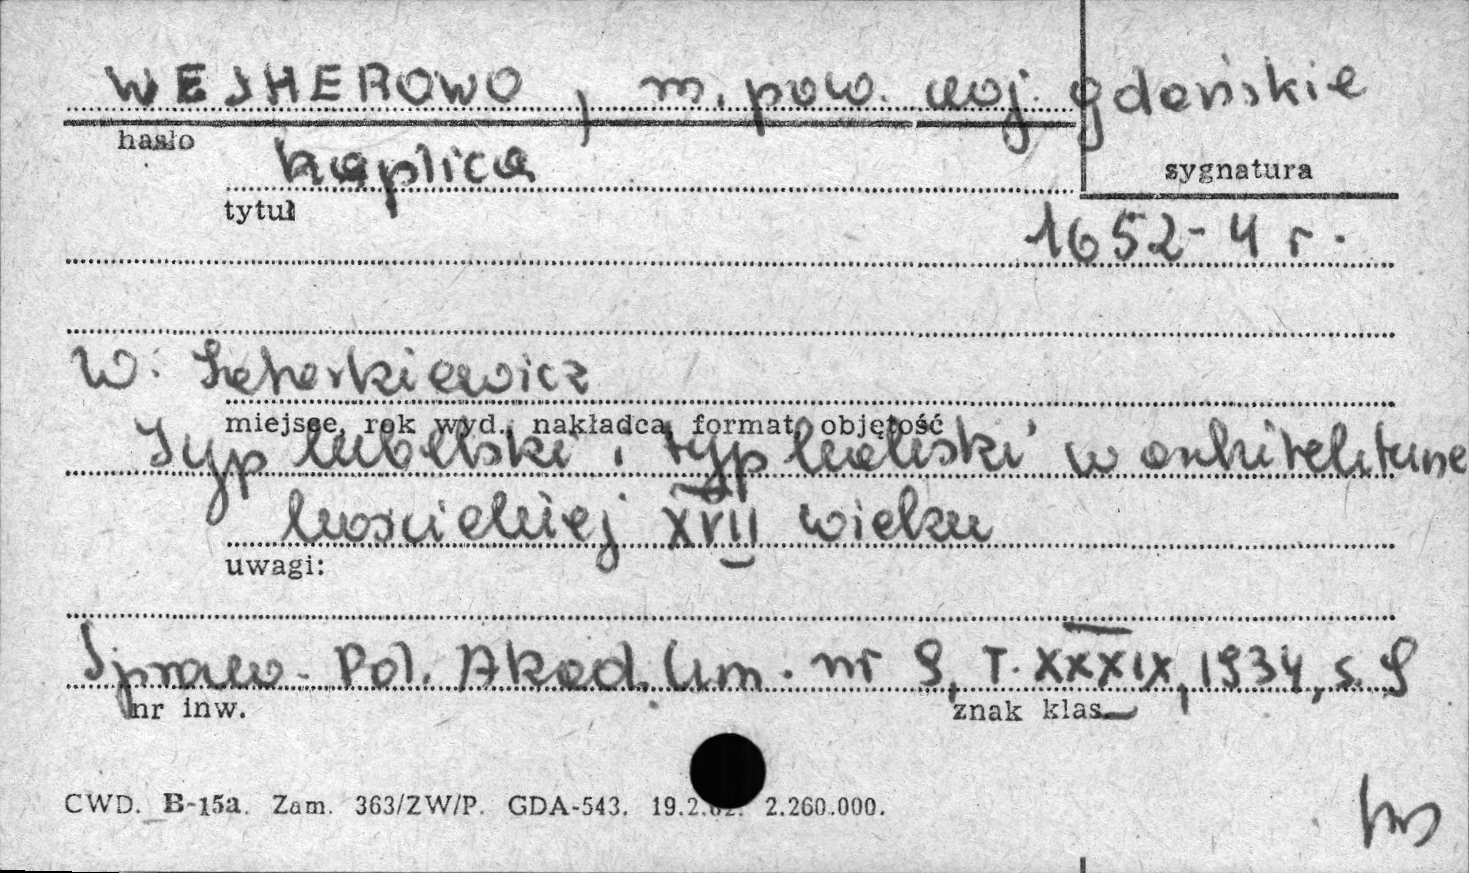 WEJHEROWO, m. pow. woj. gdańskie
hasło
kaplica
sygnatura
tytuł
1652-4 r.
W.
miejsce, rok wyd., nakładca, format, objętość
Typ lubelski i typ kaliski w architekturze
kościelnej XVII wieku
uwagi:
Spraw. Pol. Akad. Um. nr 9, T. XXXIX, 1934, s. 9
nr inw.
znak klas.
CWD. B-15a. Zam. 363/ZW/P. GDA-543. 19.2.62. 2.260.000.